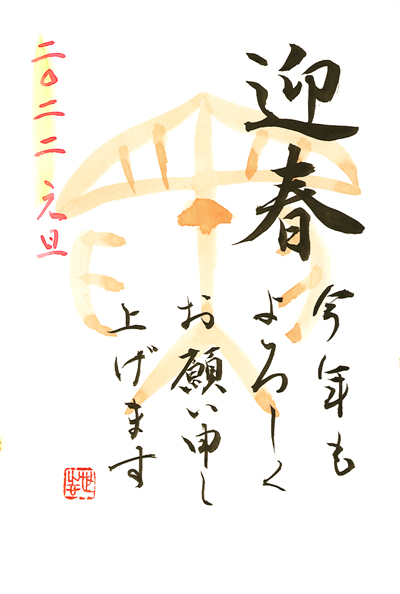 迎春
今年も
よろしく
お願い申し
上げます
二〇二二 元旦